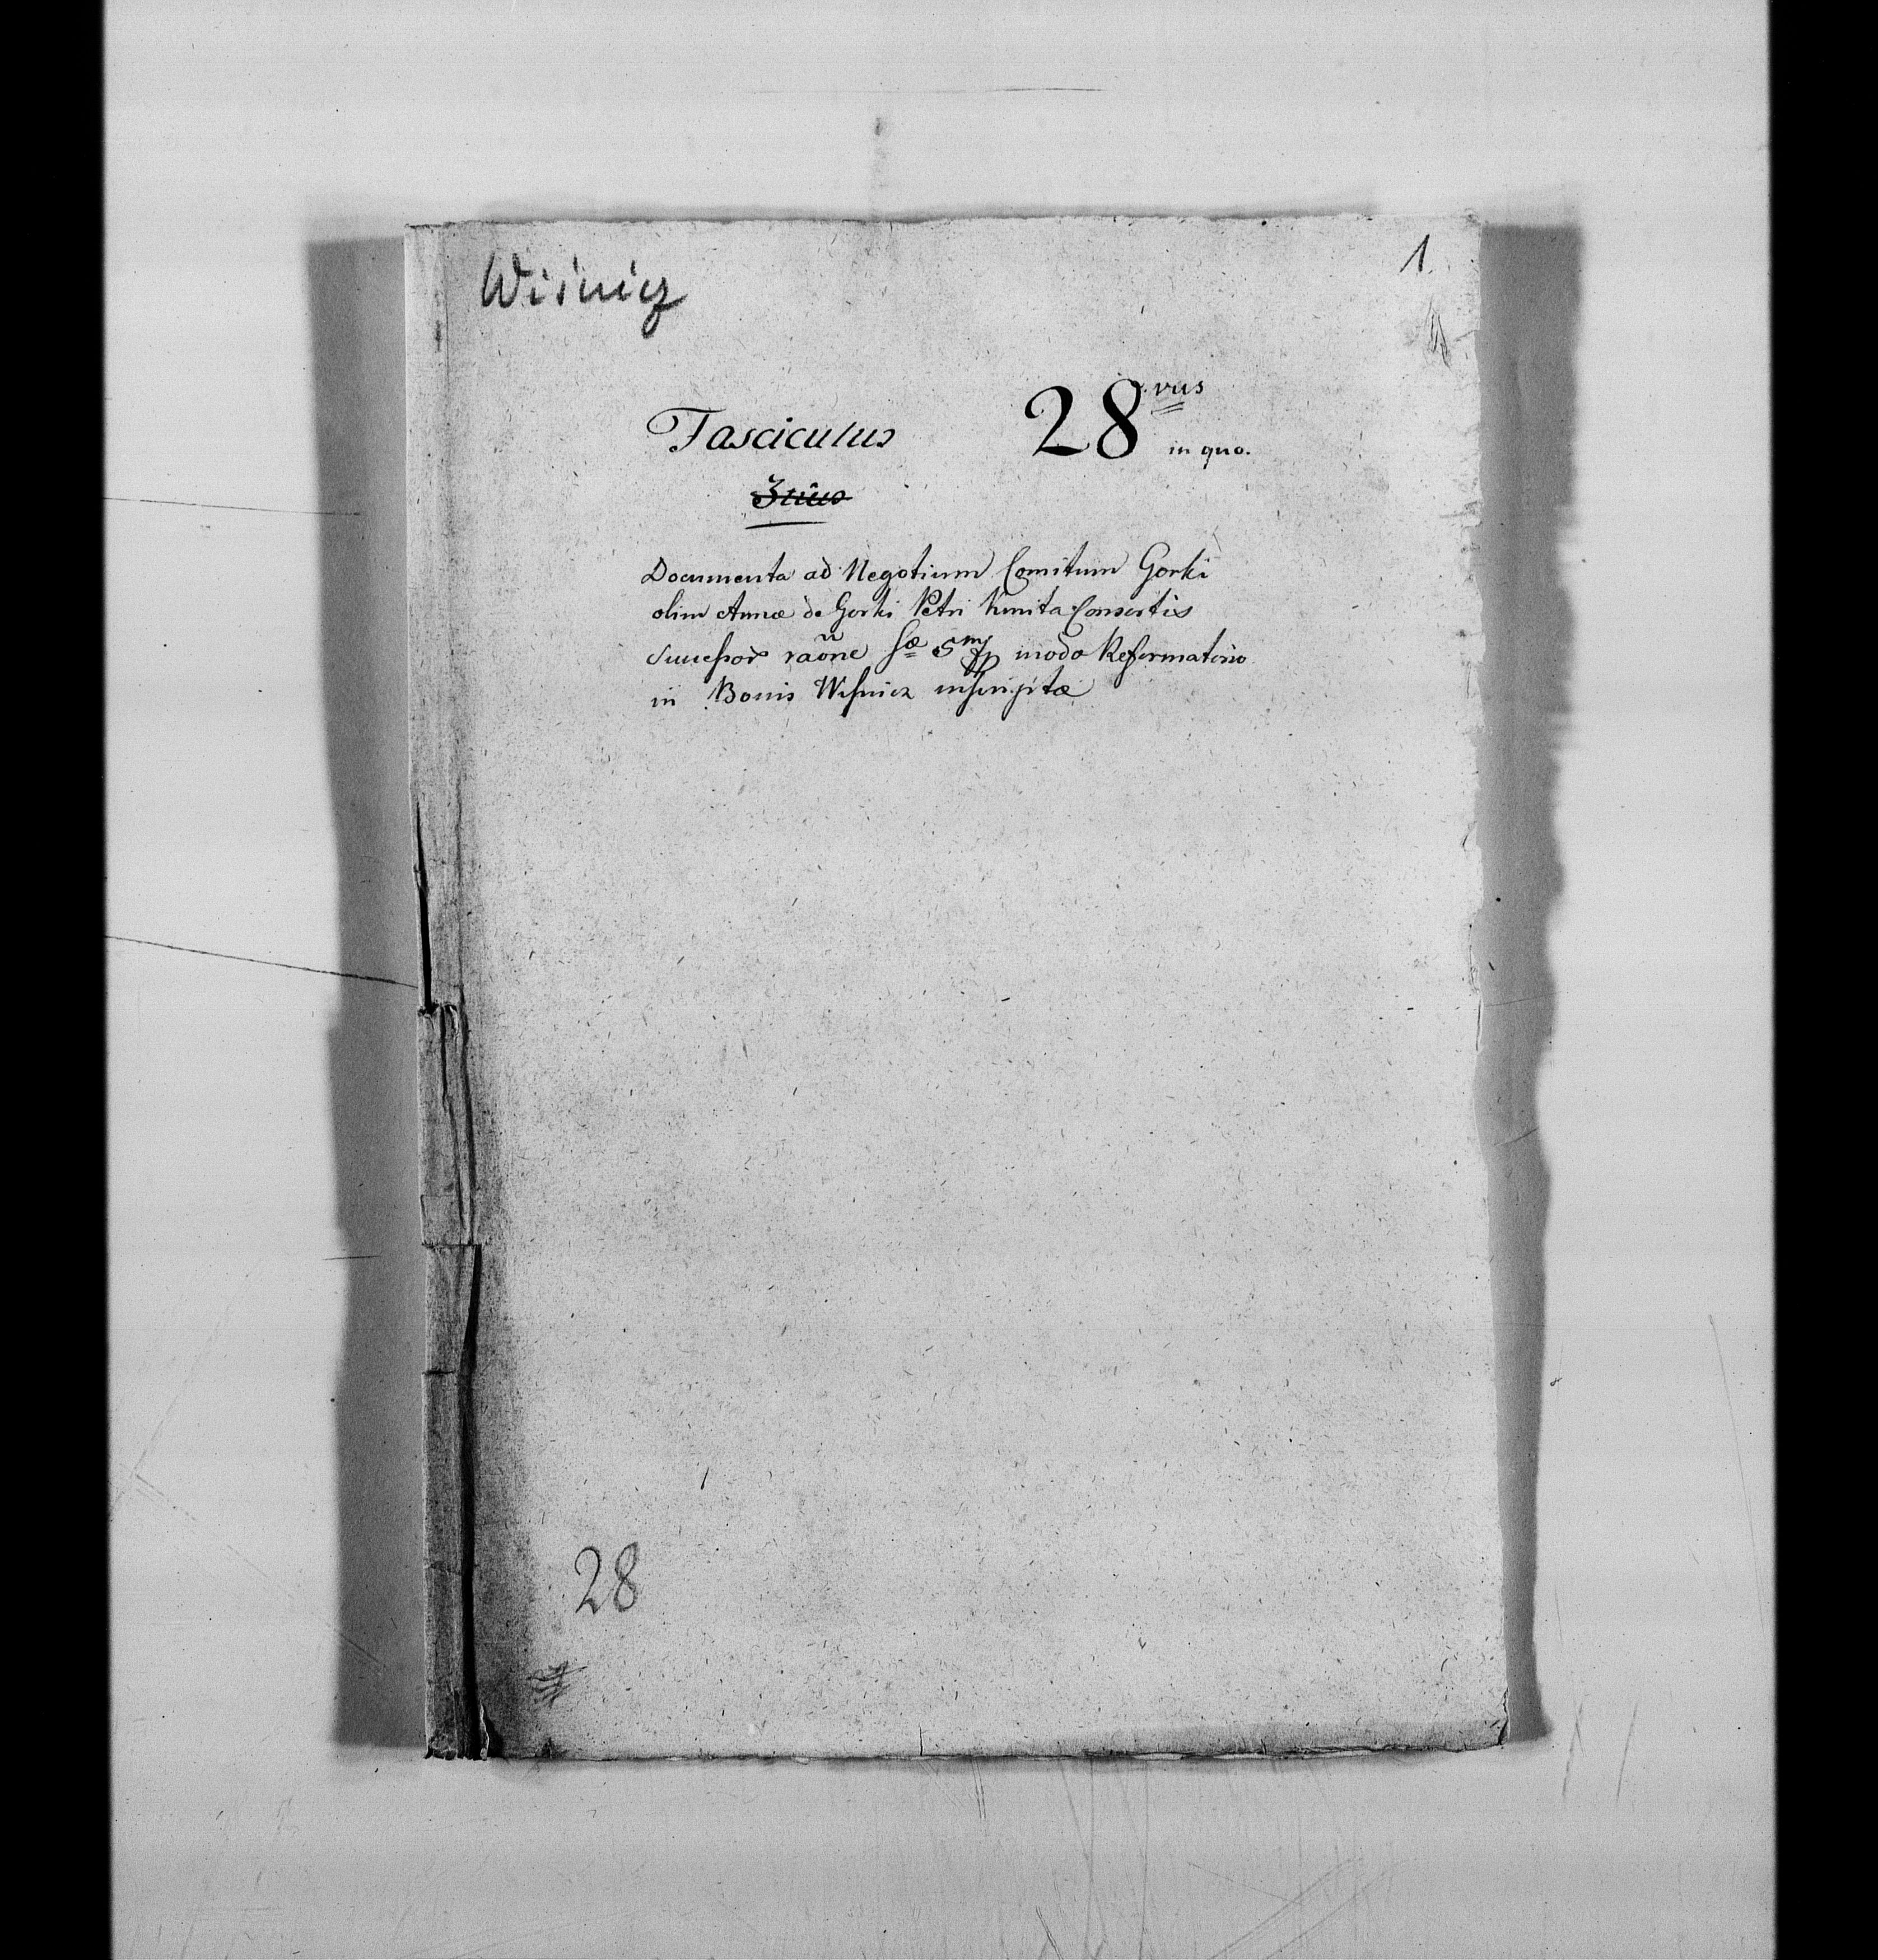 Wiśnicz
1
Fasciculus 28vus in quo.
Documenta ad Negotium Comitum Gorki
olim Annæ de Gorki Petri Kmita Consortis
Successor raõne Sæ 5m modo Reformatorio
in Bonis Wisnicz inscriptæ
28